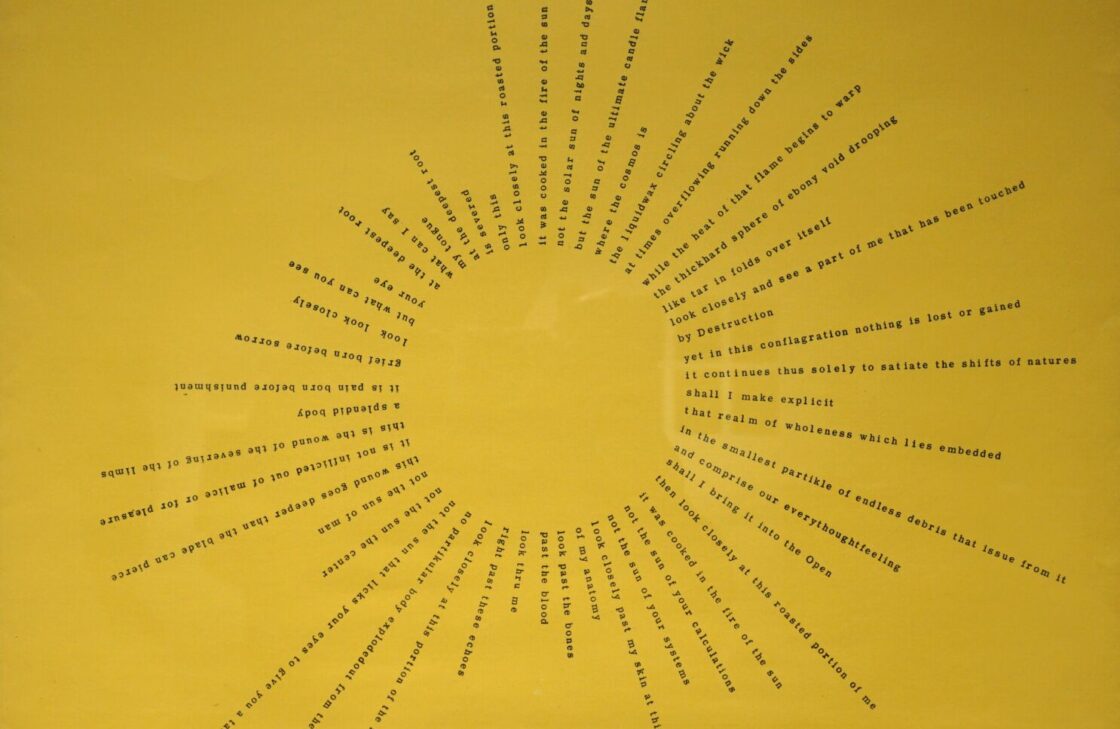 look closely at this roasted portion
it was cooked in the fire of the sun
not the solar sun of nights and days
but the sun of the ultimate candle
where the cosmos is
the liquidwax circling about the wick
at times overflowing running down the sides
while the heat of that flame begins to warp
the thickhard sphere of ebony void drooping
like tar in folds over itself
look closely and see a part of me that has been touched
by Destruction
yet in this conflagration nothing is lost or gained
it continues thus solely to satiate the shifts of natures
shall I make explicit
that realm of wholeness which lies embedded
in the smallest partikle of endless debris that issue from it
and comprise our everythoughtfeeling
shall I bring it into the Open
then look closely at this roasted portion of me
it was cooked in the fire of the sun
not the sun of your calculations
not the sun of your systems
look closely past my skin at
of my anatomy
look past the bones
past the blood
look thru me
right past these echoes
look closely at this portion of the
no partikular body explodedout from the
not the sun that licks your eyes to give you a
not the sun the center
not the sun of man
this wound goes deeper than the blade can pierce
it is not inflicted out of malice or for pleasure
this is the wound of the severing of the limbs
a splendid body
it is pain born before punishment
grief born before sorrow
look closely
but what can you see
your eye
at the deepest root
what can I say
my tongue
at the deepest root
is severed
only this